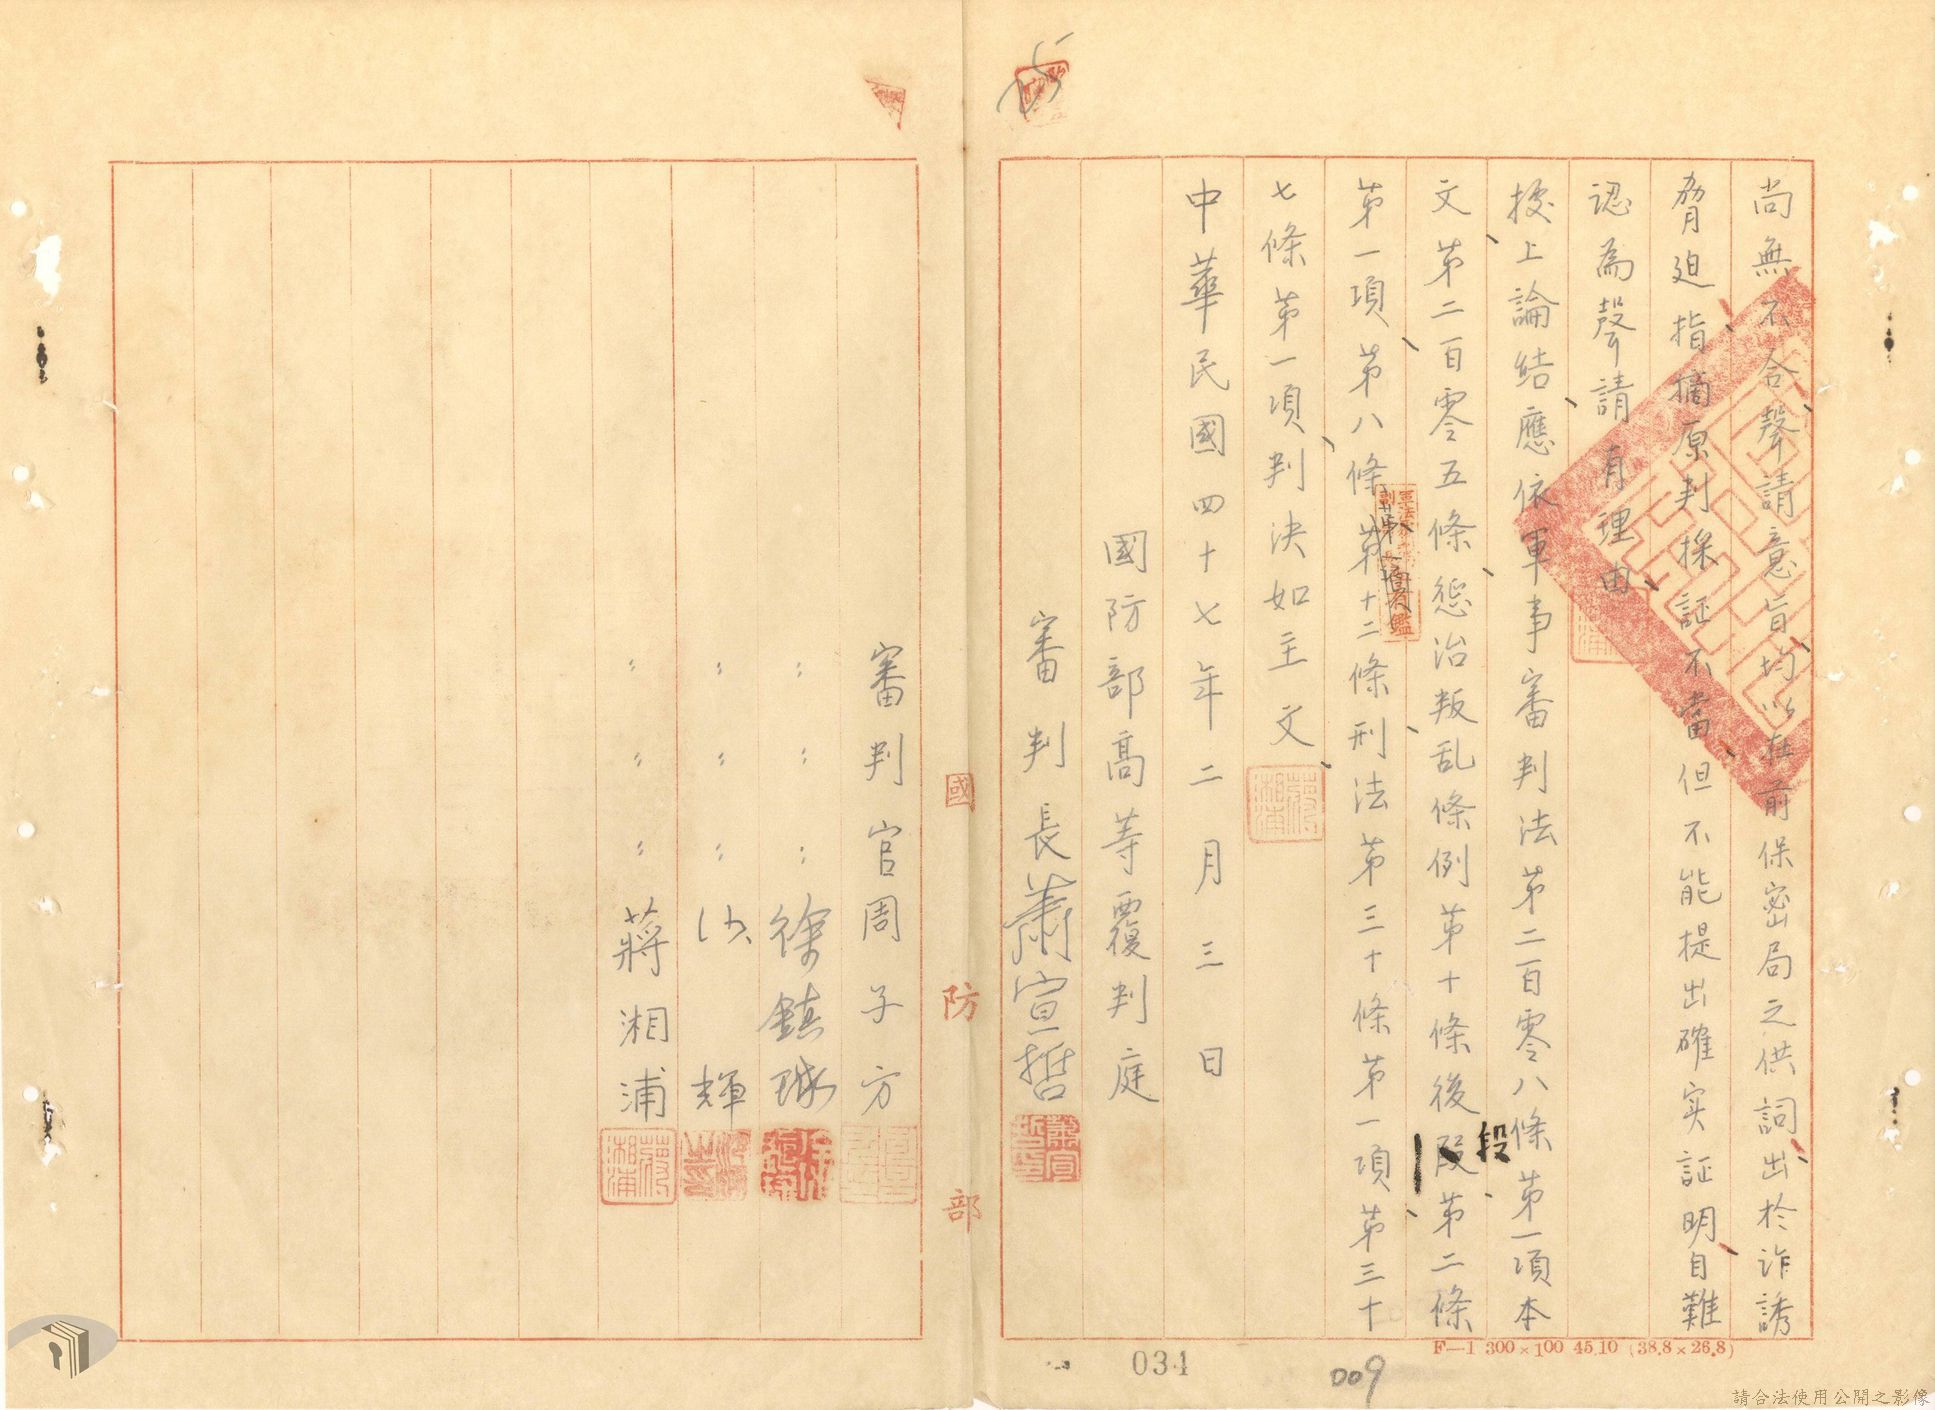 尚無不合聲請意旨均以在前保密局之供詞出於詐誘
脅迫指摘原判採証不當但不能提出確实証明自難
認為聲請有理由
據上論結應依軍事審判法第二百零八條第一項本
文第二百零五條懲治叛乱條例第十條後段第二條
段
第一項第八條第十二條刑法第三十條第一項第三十
七條第一項判決如主文
中華民國四十七年二月三日
國防部高等覆判庭
審判長蕭宣哲
審判官周子方
〃〃〃徐鎮球
〃〃〃沙輝
〃〃〃蔣湘浦
國防部
蕭宣哲印
蔣湘浦
蔣湘浦
F—1 300×100 45.10 (38.8×26.8)
034
009
請合法使用公開之影像